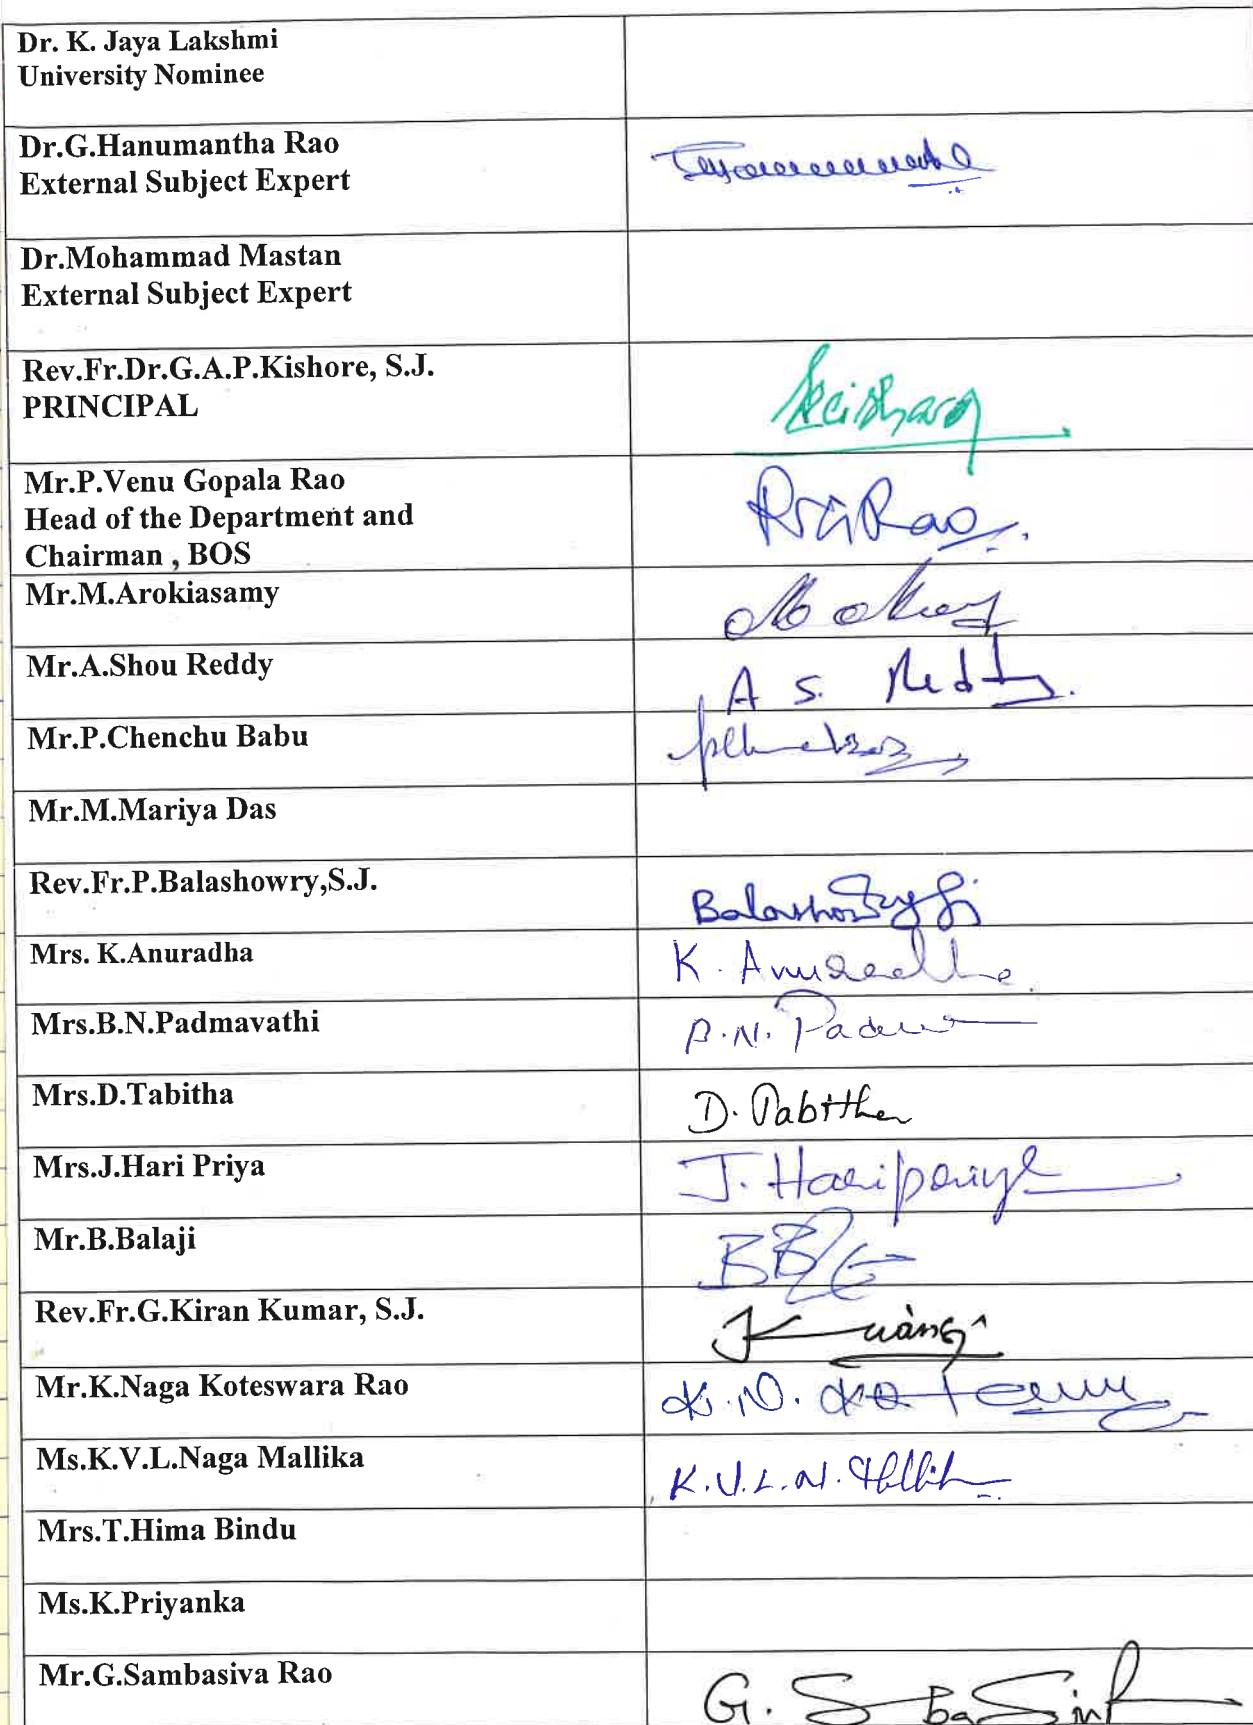 Dr. K. Jaya Lakshmi
University Nominee
Dr.G.Hanumantha Rao
External Subject Expert
Dr.Mohammad Mastan
External Subject Expert
Rev.Fr.Dr.G.A.P.Kishore, S.J.
PRINCIPAL
Mr.P.Venu Gopala Rao
Head of the Department and
Chairman , BOS
Mr.M.Arokiasamy
Mr.A.Shou Reddy
A S. Reddy.
Mr.P.Chenchu Babu
Mr.M.Mariya Das
Rev.Fr.P.Balashowry,S.J.
Balashowry SJ
Mrs. K.Anuradha
K. Anuradha
Mrs.B.N.Padmavathi
B.N. Padma
Mrs.D.Tabitha
D. Tabitha
Mrs.J.Hari Priya
J. Haripriya
Mr.B.Balaji
Rev.Fr.G.Kiran Kumar, S.J.
Mr.K.Naga Koteswara Rao
K. N.
Ms.K.V.L.Naga Mallika
K.V.L.N.
Mrs.T.Hima Bindu
Ms.K.Priyanka
Mr.G.Sambasiva Rao
G.